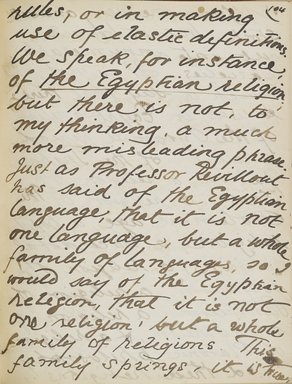 104
rules, or in making
use of elastic definitions.
We speak, for instance,
of the Egyptian religion,
but there is not, to
my thinking, a much
more misleading phrase.
Just as Professor Revillout
has said of the Egyptian
language, that it is not
one language, but a whole
family of languages, so I
would say of the Egyptian
religion, that it is not
one religion, but a whole
family of religions. This
family springs, it is true